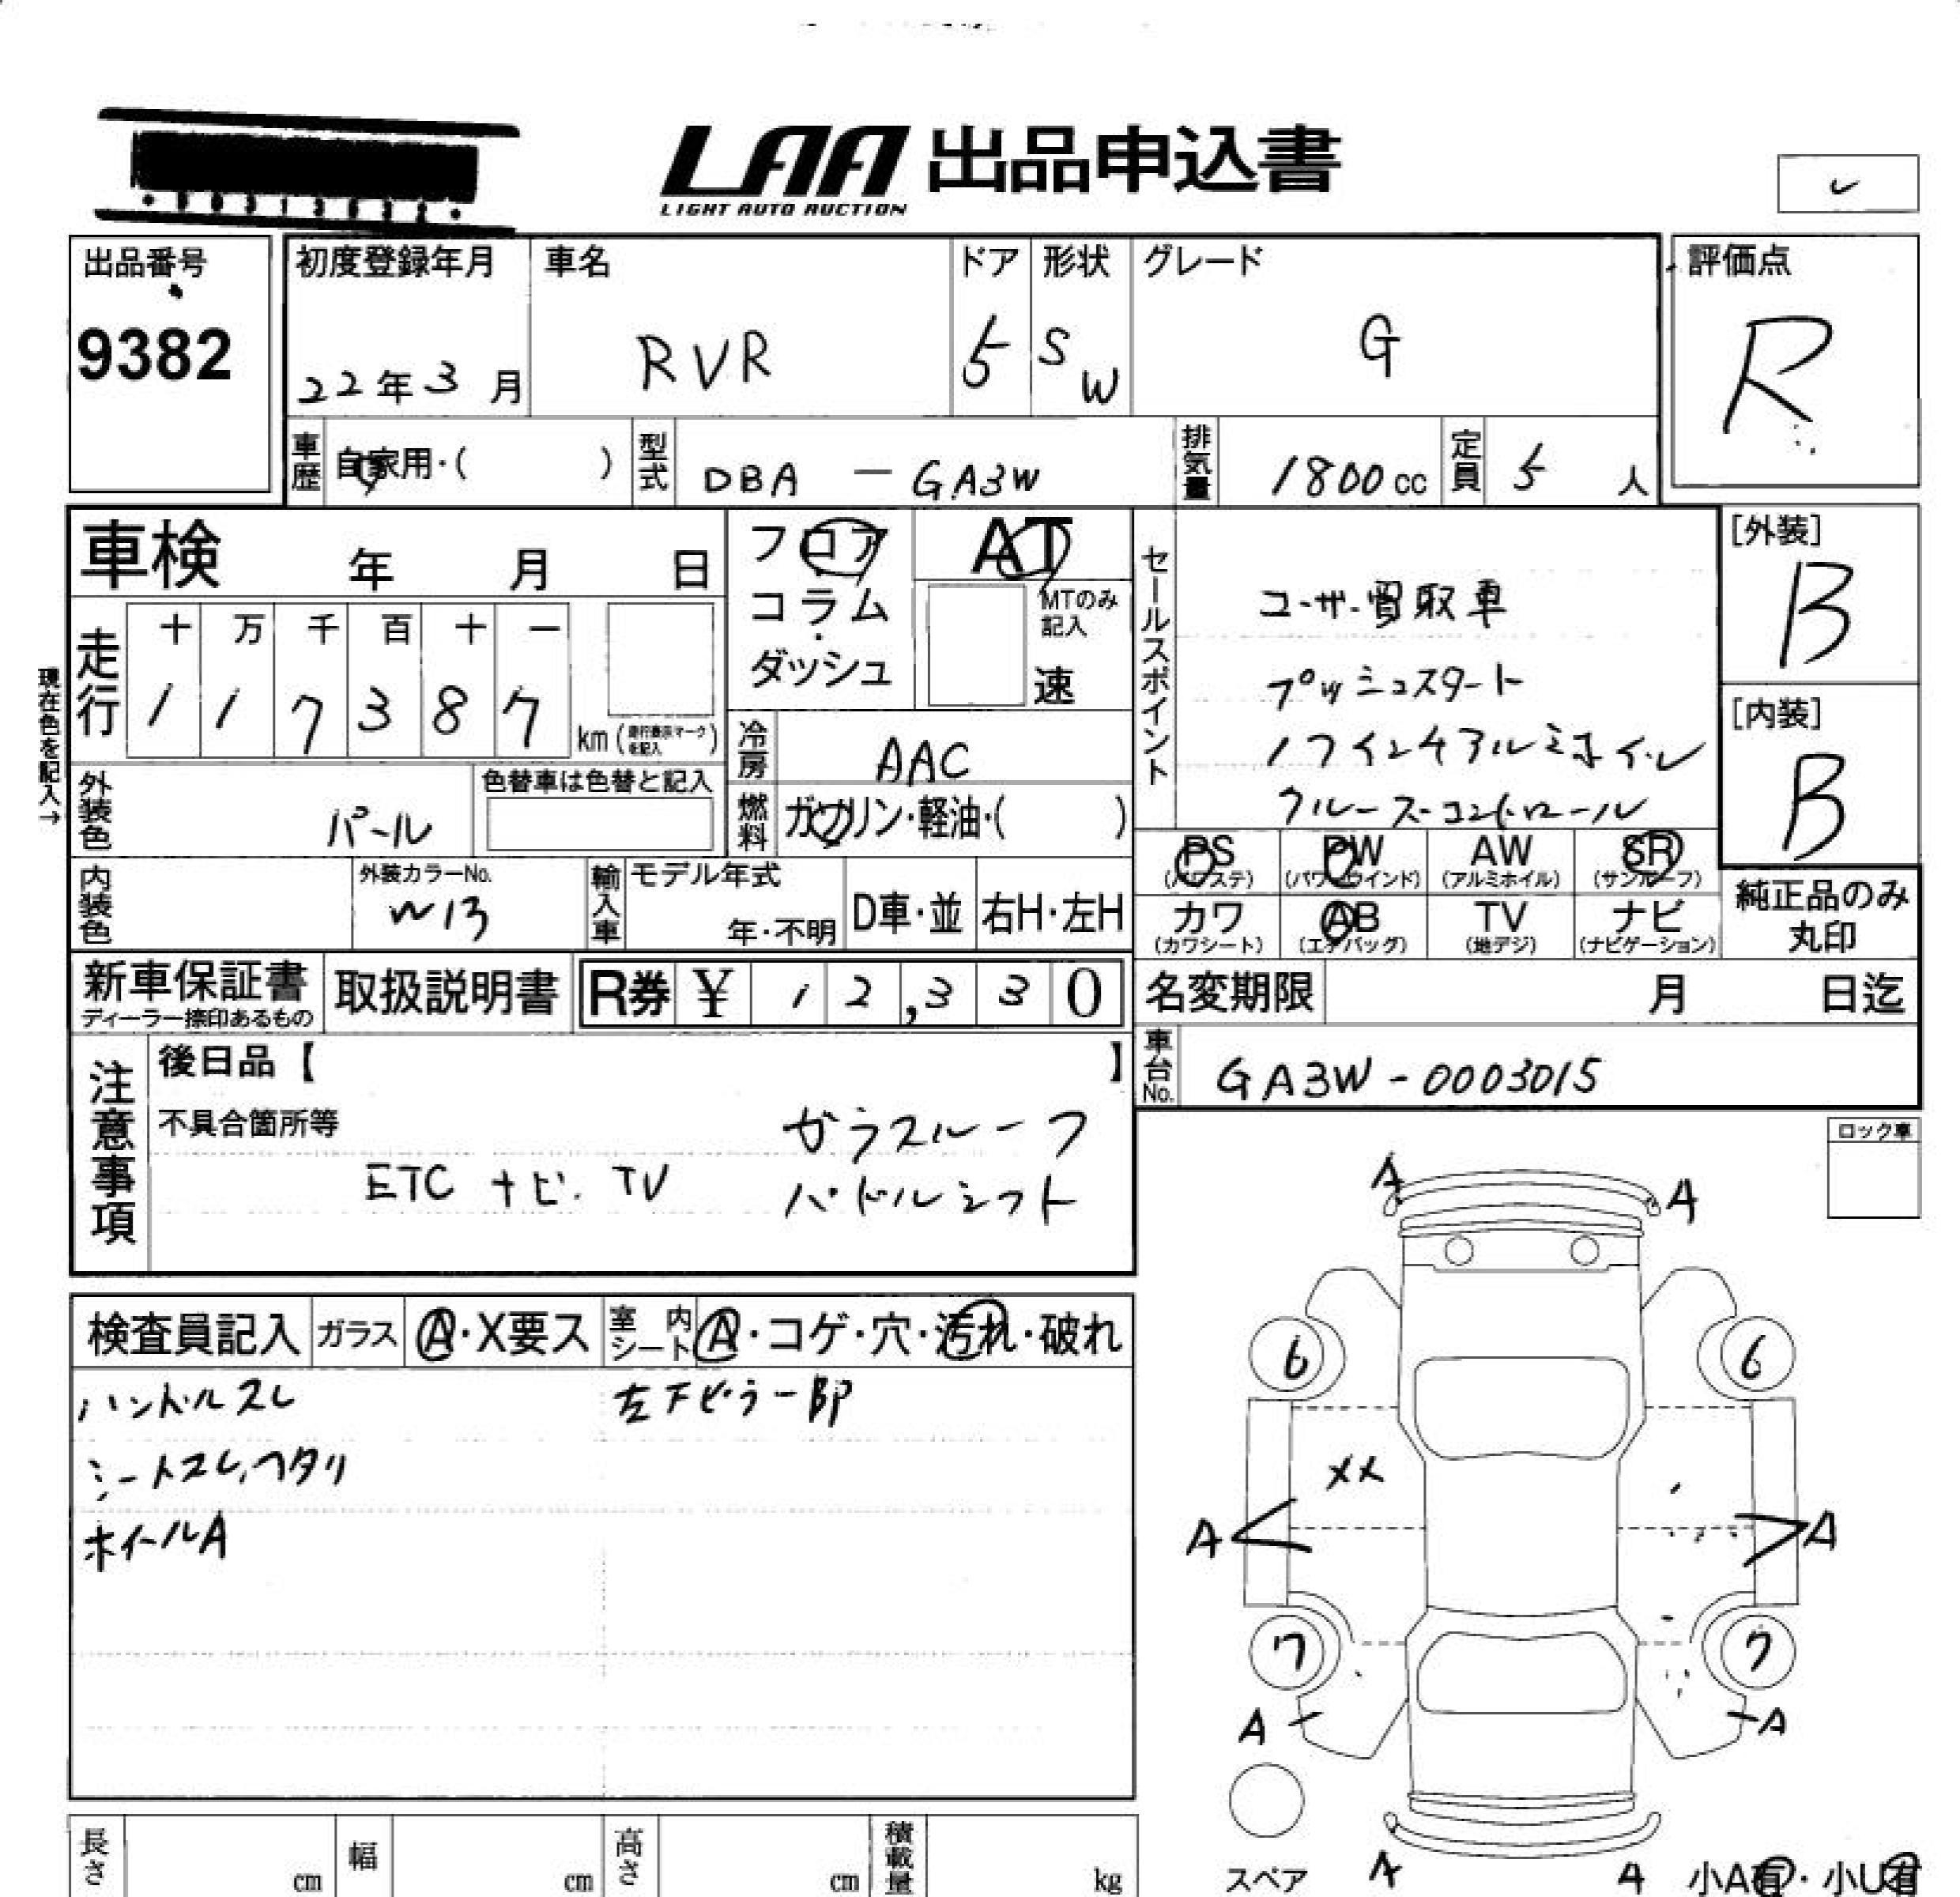 LAA 出品申込書
LIGHT AUTO AUCTION
出品番号
9382
初度登録年月
22年3月
車名
RVR
ドア
5
形状
SW
グレード
G
評価点
R
車歴
自家用・( )
型式
DBA - GA3W
排気量
1800cc
定員
5人
車検 年 月 日
フロア
コラム
ダッシュ
AT
MTのみ
記入
速
セールスポイント
ユーザー買取車
プッシュスタート
17インチアルミホイル
クルーズコントロール
[外装]
B
[内装]
B
現在色を記入→
走行
十 万 千 百 十 一
1 1 7 3 8 7
km (走行表示マークを記入)
冷房
AAC
燃料
ガソリン・軽油・( )
外装色
パール
色替車は色替と記入
内装色
外装カラーNo.
W13
輸入車
モデル年式
年・不明
D車・並
右H・左H
PS
(パワステ)
PW
(パワーウインド)
AW
(アルミホイル)
SR
(サンルーフ)
カワ
(カワシート)
AB
(エアバッグ)
TV
(地デジ)
ナビ
(ナビゲーション)
純正品のみ
丸印
新車保証書
ディーラー捺印あるもの
取扱説明書
R券 ¥ 12,330
名変期限 月 日迄
車台No.
GA3W-0003015
注意事項
後日品【 】
不具合箇所等
ガラスルーフ
ETC ナビ. TV
パドルシフト
ロック車
検査員記入
ガラス
A・X要ス
室内
シート
A・コゲ・穴・汚れ・破れ
ハンドルスレ
左下ピラー部P
シートスレ,ヘタリ
ホイールA
A A
6 6
XX
A A
7 7
A A
スペア
A A
小A有・小U有
長さ cm
幅 cm
高さ cm
積載量 kg